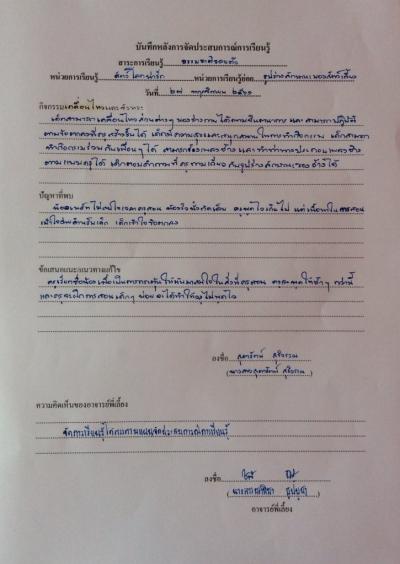 บันทึกหลังการจัดประสบการณ์การเรียนรู้
สาระการเรียนรู้ ธรรมชาติรอบตัว
หน่วยการเรียนรู้ สัตว์โลกน่ารัก หน่วยการเรียนรู้ย่อย รูปร่างลักษณะของสัตว์เลี้ยง
วันที่ ๒๗ พฤศจิกายน ๒๕๖๑
กิจกรรมเคลื่อนไหวและจังหวะ
เด็กสามารถเคลื่อนไหวส่วนต่างๆ ของร่างกายได้ตามจินตนาการ และสามารถปฏิบัติ
ตามข้อตกลงที่ครูสร้างขึ้นได้ เด็กมีความสุขและสนุกสนานในการทำกิจกรรม เด็กสามารถ
ทำกิจกรรมร่วมกับเพื่อนๆ ได้ สามารถร้องเพลงช้าง และทำท่าทางประกอบเพลงช้าง
ตามแบบครูได้ เด็กตอบคำถามที่ครูถามเกี่ยวกับรูปร่างลักษณะของช้างได้
ปัญหาที่พบ
น้อง ไม่สนใจเวลาครูสอน
เด็กเข้าใจข้อตกลง
ข้อเสนอแนะ/แนวทางแก้ไข
ครูเรียกชื่อน้องเพื่อเป็นการกระตุ้นให้หันมาสนใจในสิ่งที่ครูสอน ครูจะพูดให้ช้าๆ กว่านี้
และครูจะฝึกการสอนเด็กๆ บ่อยๆ
ลงชื่อ สุดารัตน์
(นางสาวสุดารัตน์)
ความคิดเห็นของอาจารย์พี่เลี้ยง
จัดการเรียนรู้ได้ตรงตามแผนจัดประสบการณ์การเรียนรู้
ลงชื่อ
อาจารย์พี่เลี้ยง